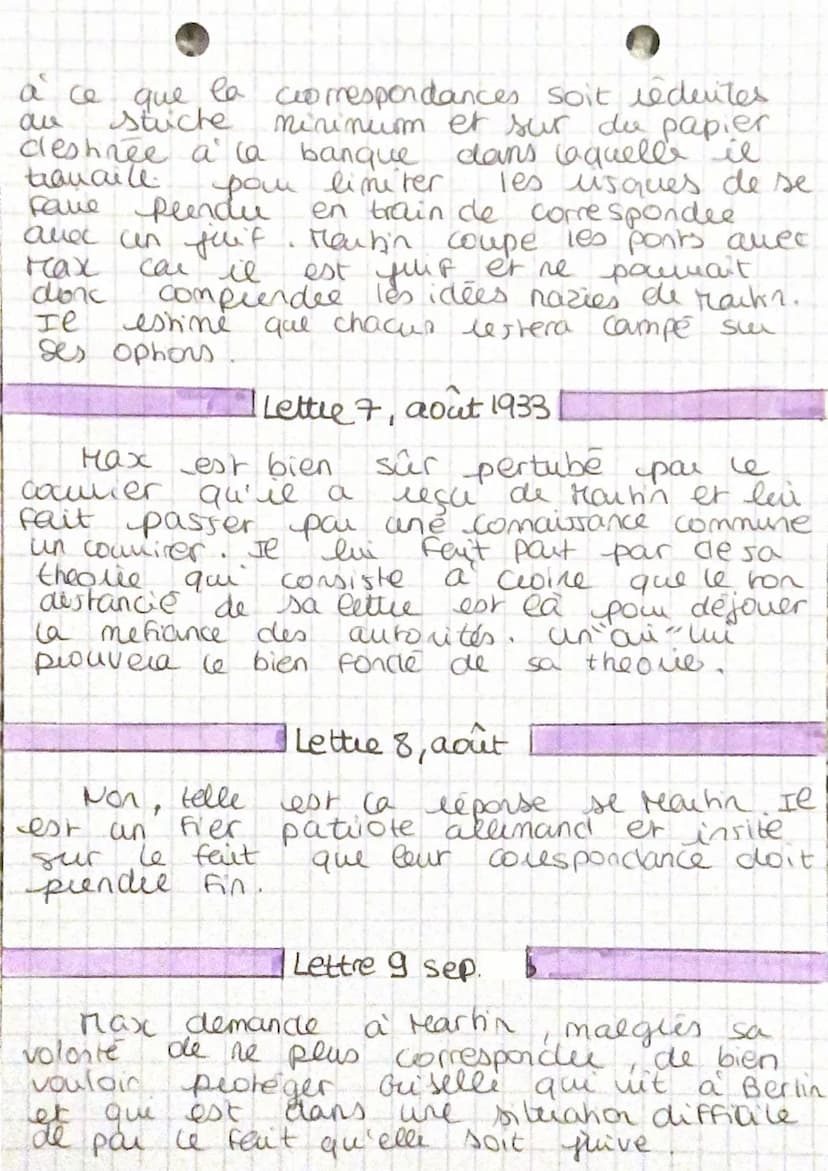 à ce que la correspondances soit réduites
au stricte minimum et sur du papier
destinée à la banque dans laquelle il
travaille pour limiter les risques de se
faire prendre en train de correspondre
avec un juif. Martin coupe les ponts avec
Max car il est juif et ne pouvait
donc comprendre les idées nazies de Martin.
Il estime que chacun restera campé sur
ses options.
Lettre 7, août 1933
Max est bien sûr pertubé par le
courrier qu'il a reçu de Martin et lui
fait passer par une connaissance commune
un courrirer. Il lui fait part par de sa
theorie qui consiste à croire que le ton
distancié de sa lettre est là pour déjouer
la mefiance des autorités. un "oui" lui
prouvera le bien fondé de sa theorie.
Lettre 8, août
Non, telle est la réponse de Martin. Il
est un fier patriote allemand et insite
sur le fait que leur correspondance doit
prendre fin.
Lettre 9 sep.
Max demande à Martin, malgrés sa
volonté de ne plus correspondre, de bien
vouloir protéger Griselle qui vit à Berlin
et qui est dans une situation difficile
de par le fait qu'elle soit juive.